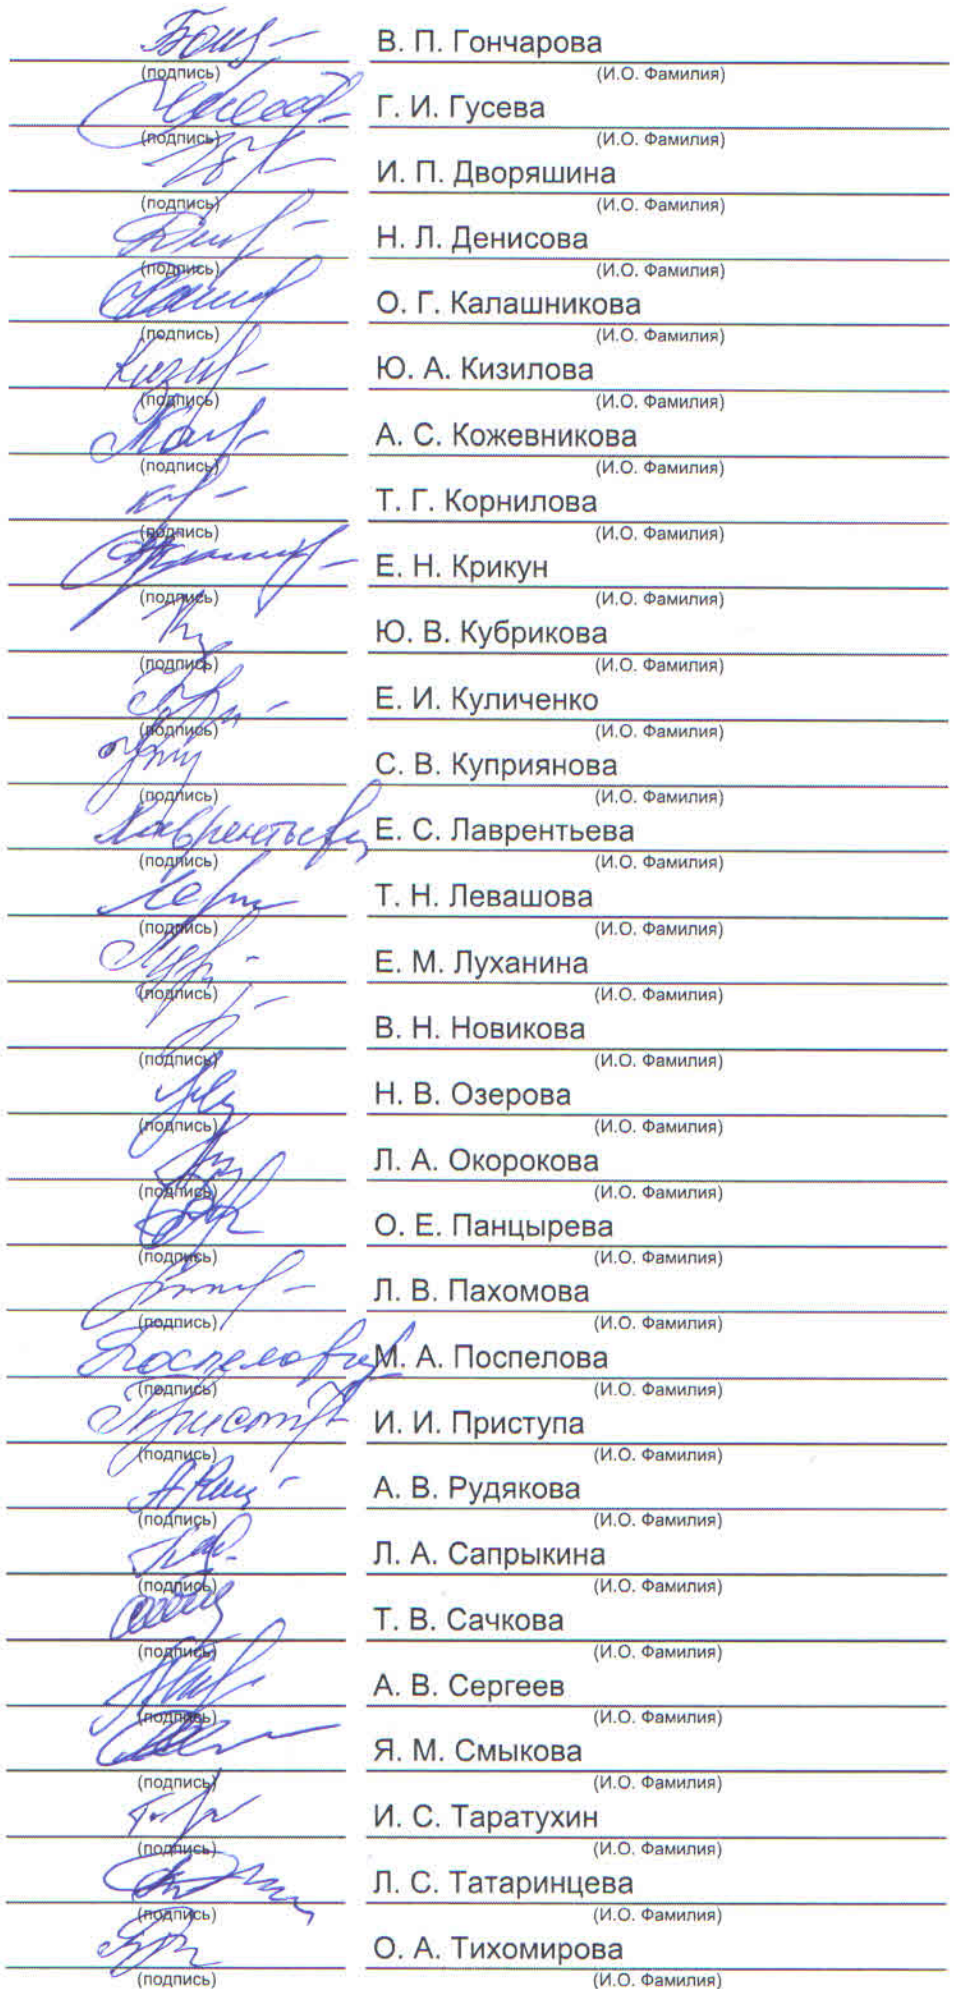 В. П. Гончарова
(подпись) (И.О. Фамилия)
Г. И. Гусева
(подпись) (И.О. Фамилия)
И. П. Дворяшина
(подпись) (И.О. Фамилия)
Н. Л. Денисова
(подпись) (И.О. Фамилия)
О. Г. Калашникова
(подпись) (И.О. Фамилия)
Ю. А. Кизилова
(подпись) (И.О. Фамилия)
А. С. Кожевникова
(подпись) (И.О. Фамилия)
Т. Г. Корнилова
(подпись) (И.О. Фамилия)
Е. Н. Крикун
(подпись) (И.О. Фамилия)
Ю. В. Кубрикова
(подпись) (И.О. Фамилия)
Е. И. Куличенко
(подпись) (И.О. Фамилия)
С. В. Куприянова
(подпись) (И.О. Фамилия)
Лаврентьева Е. С. Лаврентьева
(подпись) (И.О. Фамилия)
Т. Н. Левашова
(подпись) (И.О. Фамилия)
Е. М. Луханина
(подпись) (И.О. Фамилия)
В. Н. Новикова
(подпись) (И.О. Фамилия)
Н. В. Озерова
(подпись) (И.О. Фамилия)
Л. А. Окорокова
(подпись) (И.О. Фамилия)
О. Е. Панцырева
(подпись) (И.О. Фамилия)
Л. В. Пахомова
(подпись) (И.О. Фамилия)
М. А. Поспелова
(подпись) (И.О. Фамилия)
И. И. Приступа
(подпись) (И.О. Фамилия)
А. В. Рудякова
(подпись) (И.О. Фамилия)
Л. А. Сапрыкина
(подпись) (И.О. Фамилия)
Т. В. Сачкова
(подпись) (И.О. Фамилия)
А. В. Сергеев
(подпись) (И.О. Фамилия)
Я. М. Смыкова
(подпись) (И.О. Фамилия)
И. С. Таратухин
(подпись) (И.О. Фамилия)
Л. С. Татаринцева
(подпись) (И.О. Фамилия)
О. А. Тихомирова
(подпись) (И.О. Фамилия)